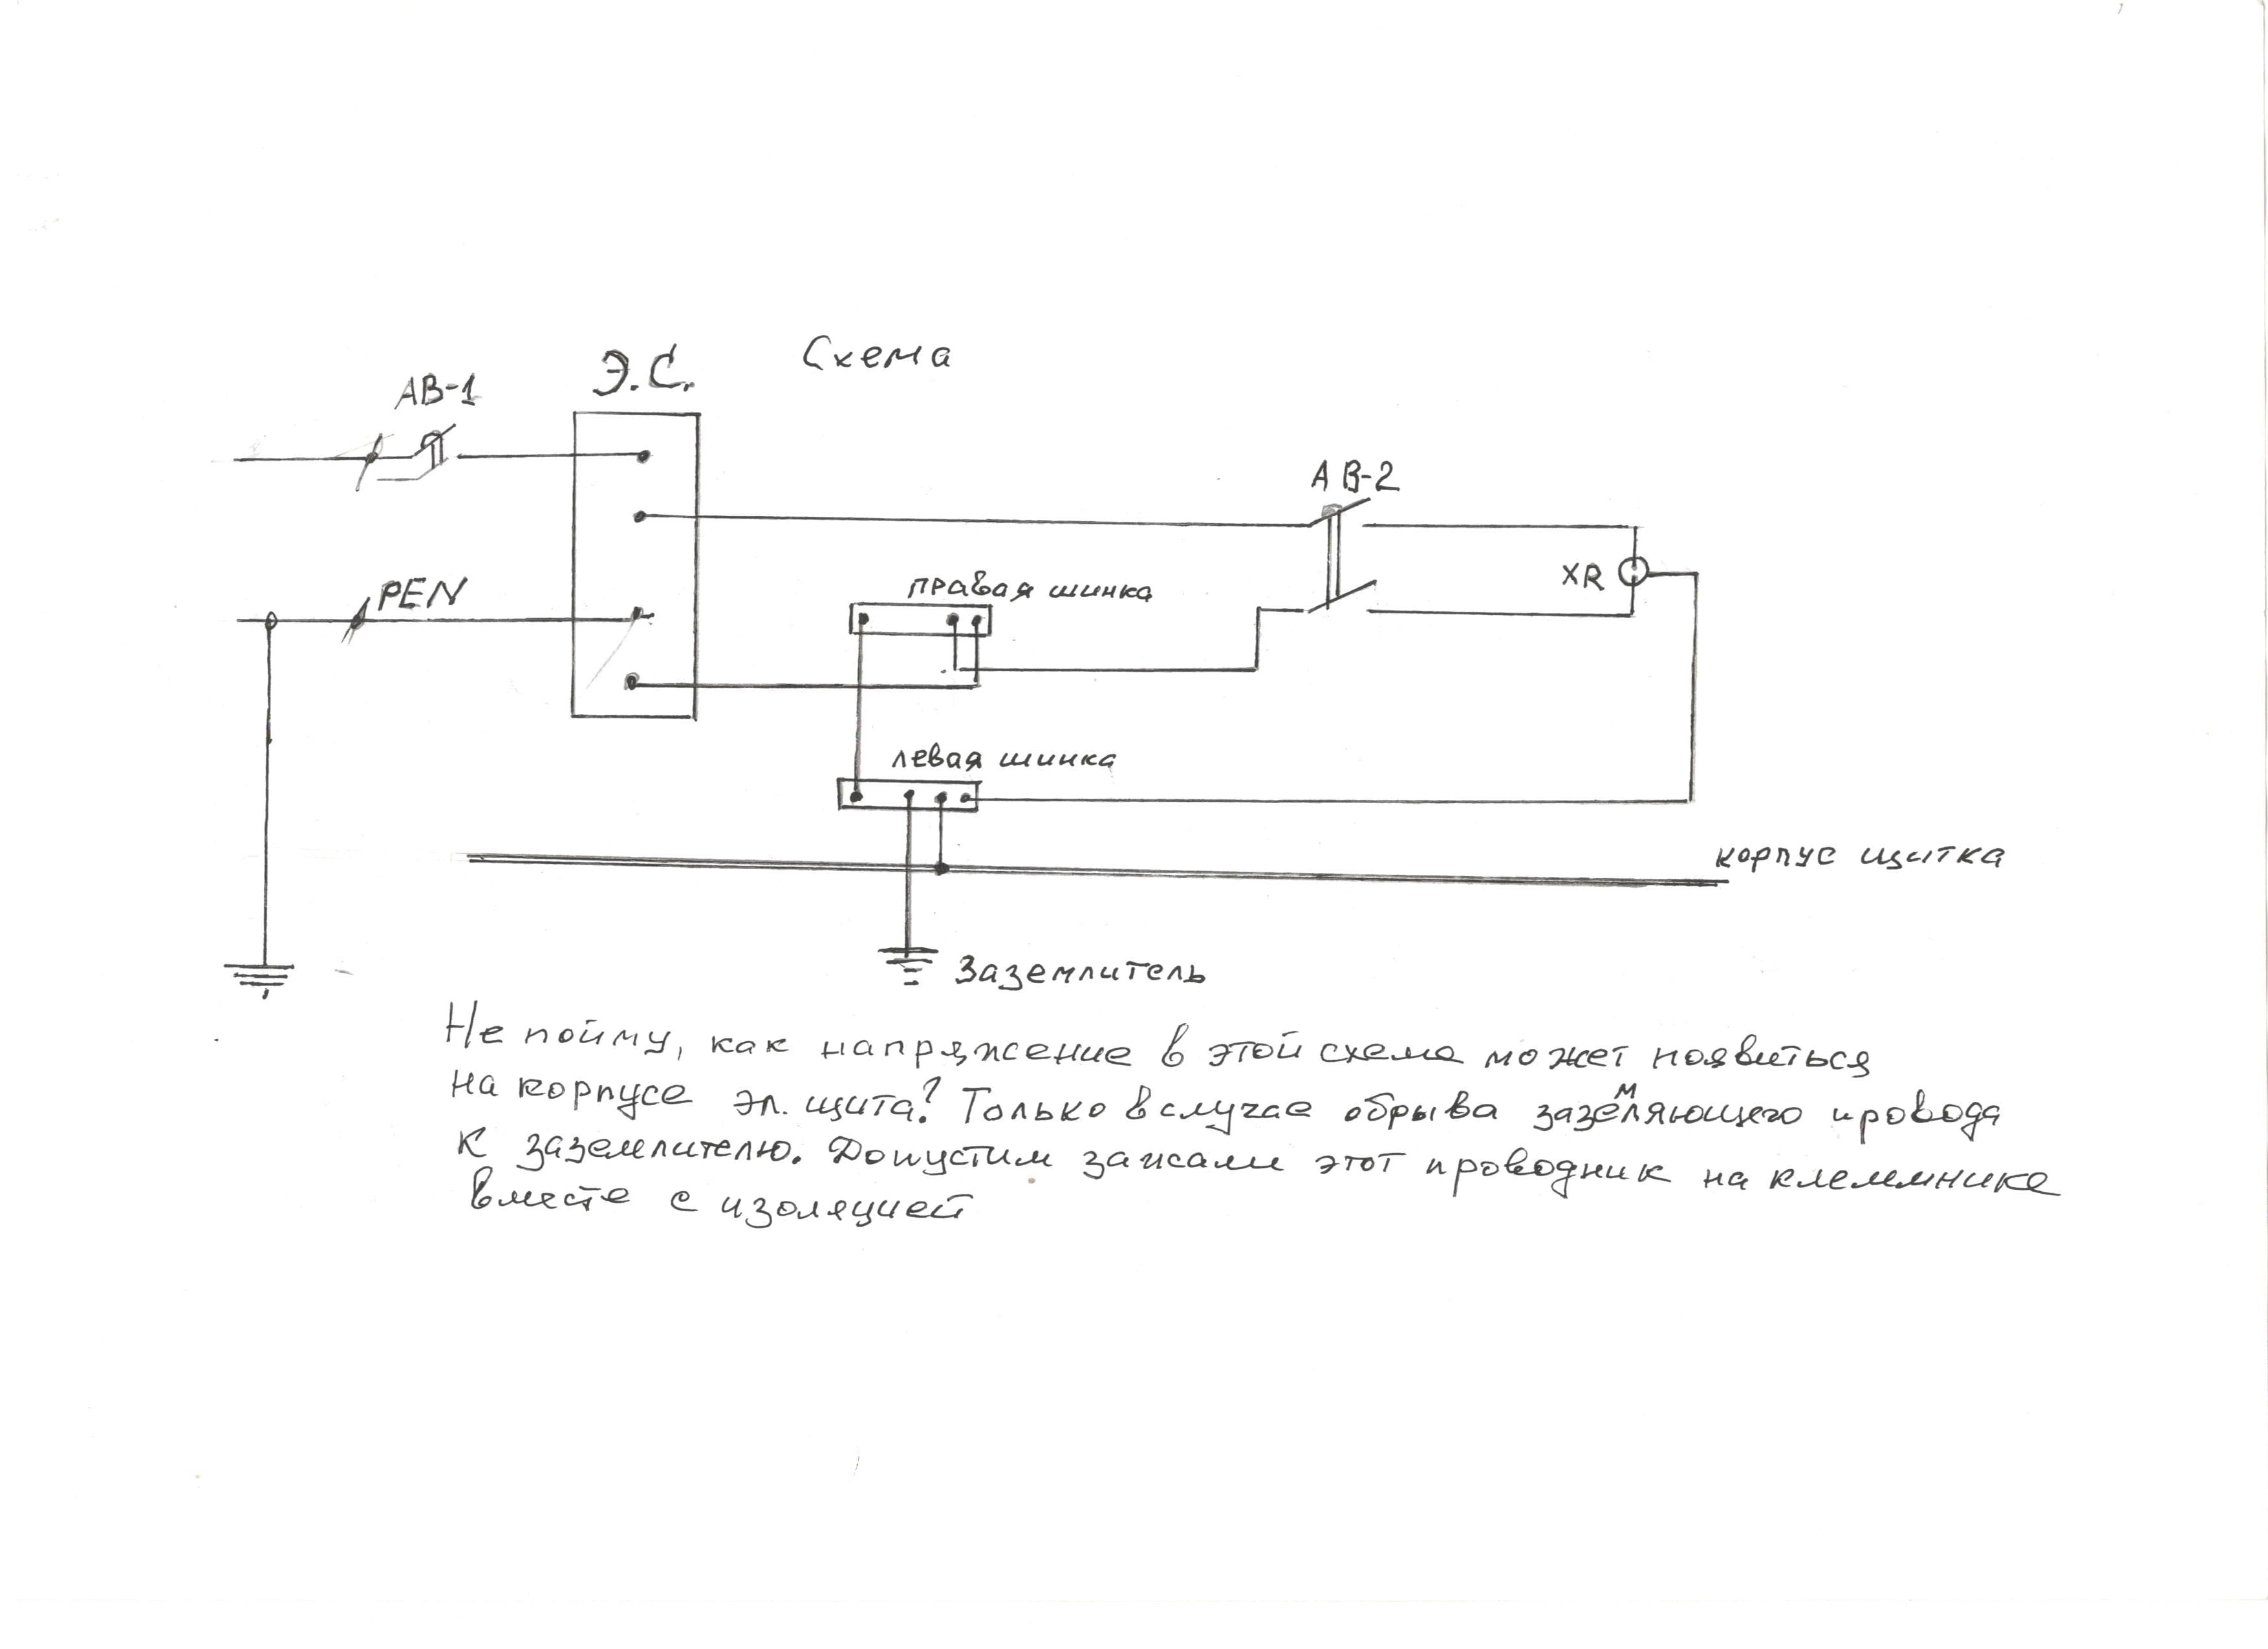 Схема
Э.С.
АВ-1
АВ-2
PEN
правая шинка
XR
левая шинка
корпус щитка
Заземлитель
Не пойму, как напряжение в этой схеме может появиться
на корпусе эл. щита? Только в случае обрыва заземляющего провода
к заземлителю. Допустим зажали этот проводник на клеммнике
вместе с изоляцией